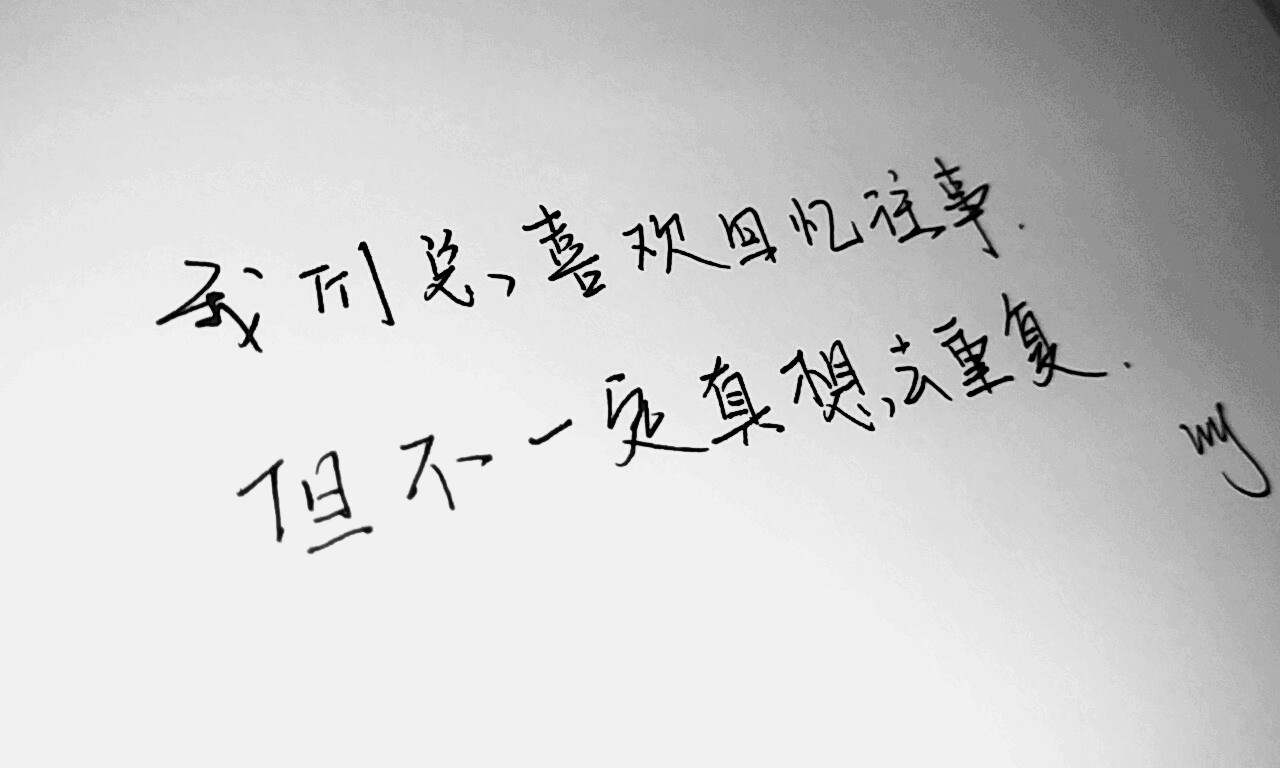 我们总喜欢回忆往事.
但不一定真想去重复.
wy